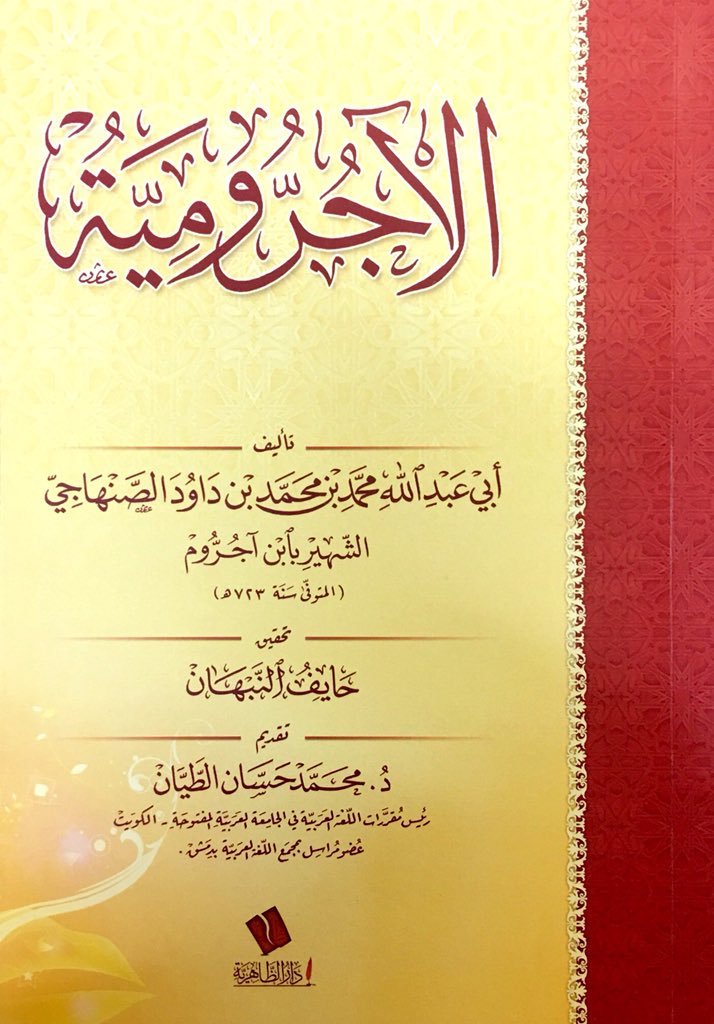 الآجُرُّومِيَّةُ
تأليف
أَبِي عَبْدِ ٱللهِ مُحَمَّدِ بْنِ مُحَمَّدِ بْنِ دَاوُدَ الصَّنْهَاجِيّ
الشَّهِيرِ بِٱبْنِ آجُرُّوم
(المتوفّى سَنَة ٧٢٣هـ)
تحقيق
حَايِفُ ٱلنَّبْهَان
تقديم
د. مُحَمَّد حَسَّان الطَّيَّان
رئيس مقررات اللّغة العَربيَّة في الجَامِعَة العَرَبيَّة المفتوحَة - الكويت
عُضو مُراسِل بمجمَع اللّغة العَربيّة بدِمَشق.
دَارُ الظَّاهِرِيَّة